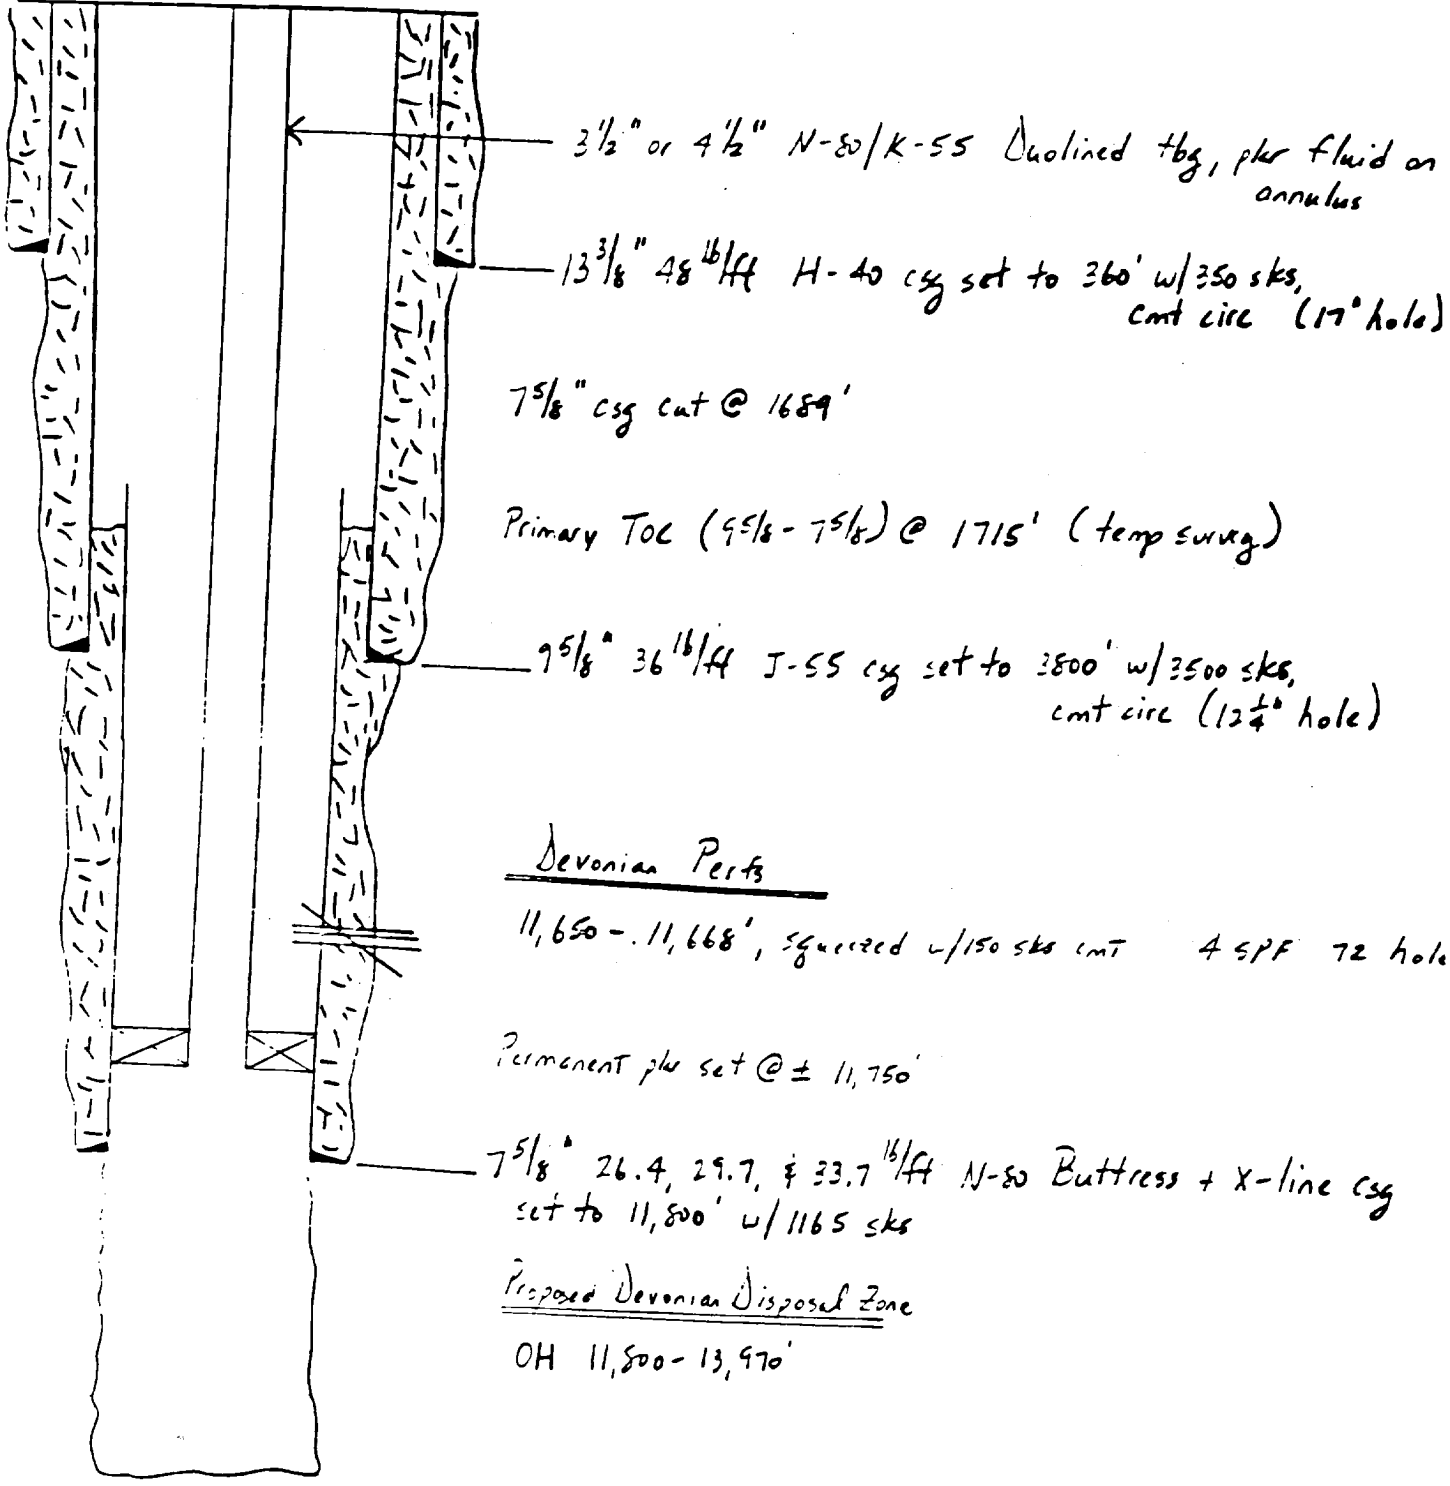 3 1/2" or 4 1/2" N-80/K-55 Duolined tbg, pkr fluid on
annulus
13 3/8" 48 lb/ft H-40 csg set to 360' w/350 sks,
cmt circ (17" hole)
7 5/8" csg cut @ 1689'
Primary TOC (9 5/8 - 7 5/8) @ 1715' (temp survey)
9 5/8" 36 lb/ft J-55 csg set to 3800' w/3500 sks,
cmt circ (12 1/4" hole)
Devonian Perfs
11,650 - 11,668', squeezed w/150 sks cmt 4 SPF 72 hole
Permanent pkr set @ ± 11,750'
7 5/8" 26.4, 29.7, & 33.7 lb/ft N-80 Buttress + X-line csg
set to 11,800' w/1165 sks
Proposed Devonian Disposal Zone
OH 11,800 - 13,970'